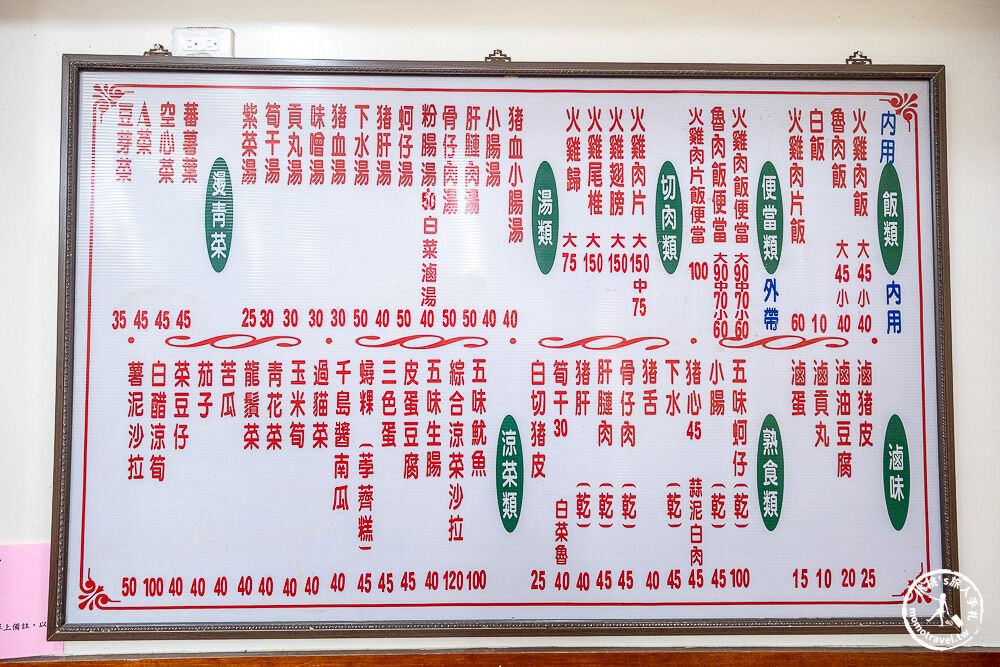 內用
飯類
內用
火雞肉飯 大45小40
魯肉飯 大45小40
白飯 10
火雞肉片飯 60
便當類
外帶
火雞肉飯便當 大90中70小60
魯肉飯便當 大90中70小60
火雞肉片飯便當 100
切肉類
火雞肉片 大150中75
火雞翅膀 大150
火雞尾椎 大150
火雞歸 大75
湯類
豬血小腸湯 40
小腸湯 40
肝腱肉湯 50
骨仔肉湯 50
粉腸湯50白菜滷湯 40
蚵仔湯 50
豬肝湯 40
下水湯 50
豬血湯 30
味噌湯 30
貢丸湯 30
筍干湯 30
紫菜湯 25
燙青菜
蕃薯葉 45
空心菜 45
A菜 45
豆芽菜 35
滷味
滷豬皮 25
滷油豆腐 20
滷貢丸 10
滷蛋 15
熟食類
五味蚵仔(乾) 100
小腸(乾) 45
豬心45 蒜泥白肉 45
下水(乾) 45
豬舌 40
骨仔肉(乾) 45
肝腱肉(乾) 45
豬肝(乾) 40
筍干30 白菜魯 40
白切豬皮 25
涼菜類
五味魷魚 100
綜合涼菜沙拉 120
五味生腸 40
皮蛋豆腐 45
三色蛋 45
蟳粿(荸薺糕) 45
千島醬南瓜 40
過貓菜 40
玉米筍 40
青花菜 40
龍鬚菜 40
苦瓜 40
茄子 40
菜豆仔 40
白醋涼筍 100
薯泥沙拉 50
上備註，以
旅行手札
momotravel.tw